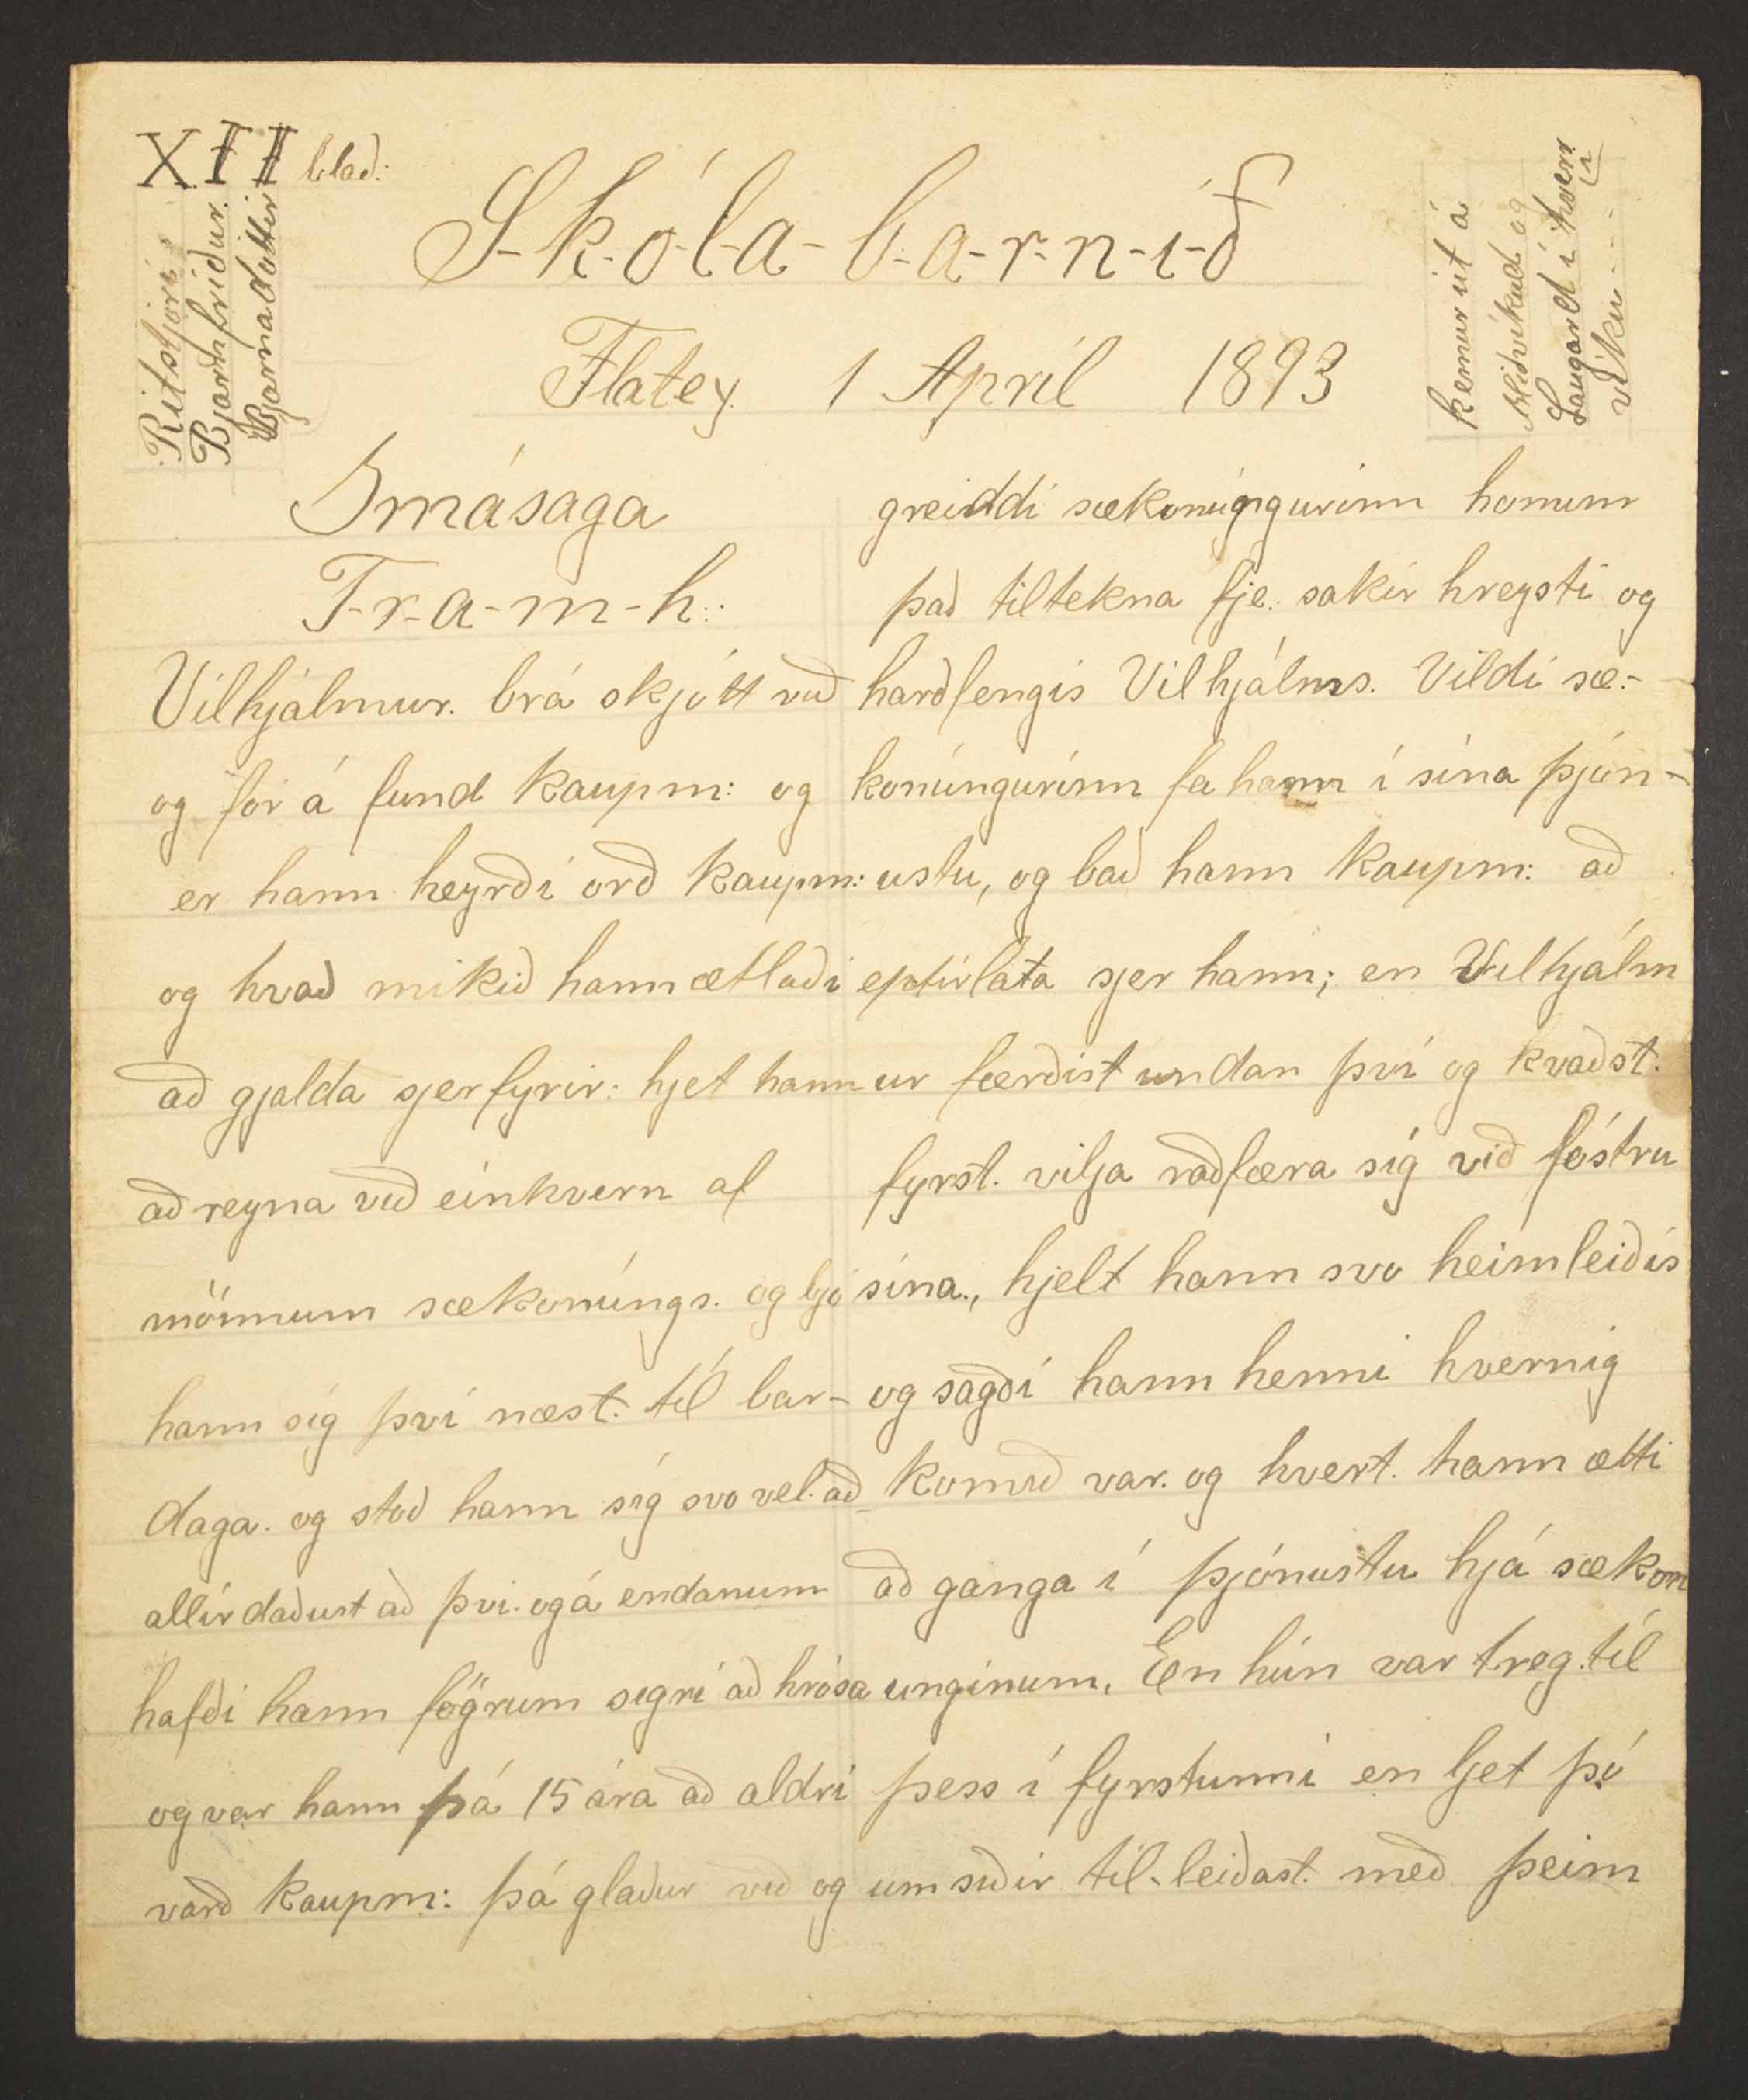 XII blað:
Ritstjóri
Bjarnfríður.
Bjarnadóttir
S-k-ó-l-a-b-a-r-n-i-ð
Flatey. 1 Apríl 1893
kemur út á
Miðvikud og
Laugard í hverri
viku
Smásaga
F-r-a-m-h:
Vilhjálmur. brá skjótt við
og fór á fund kaupm: og
er hann heyrði orð kaupm:
og hvað mikið hann ætlaði
að gjalda sjer fyrir: hjet hann
að reyna við einkvern af
mönnum sækonúngs. og bjó
hann sig því næst. til bar-
daga. og stóð hann sig svo vel. að
allir dáðust að því. og á endanum
hafði hann fögrum sigri að hrósa
og var hann þá 15 ára að aldri
varð kaupm: þá glaður við og
greiddi sækonúngurinn honum
það tiltekna fje. sakir hreysti og
harðfengis Vilhjálms. Vildi sæ-
konúngurinn fa hann í sína þjón-
ustu, og bað hann kaupm: að
eptirláta sjer hann; en Vilhjálm
ur færðist undan því og kvaðst.
fyrst. vilja ráðfæra síg við fóstru
sína., hjelt hann svo heimleiðis
og sagði hann henni hvernig
komið var. og hvert. hann ætti
að ganga í þjónustu hjá sækon
unginum. En hún var treg. til
þess í fyrstunni en ljet þó
um síðir til-leiðast. með þeim